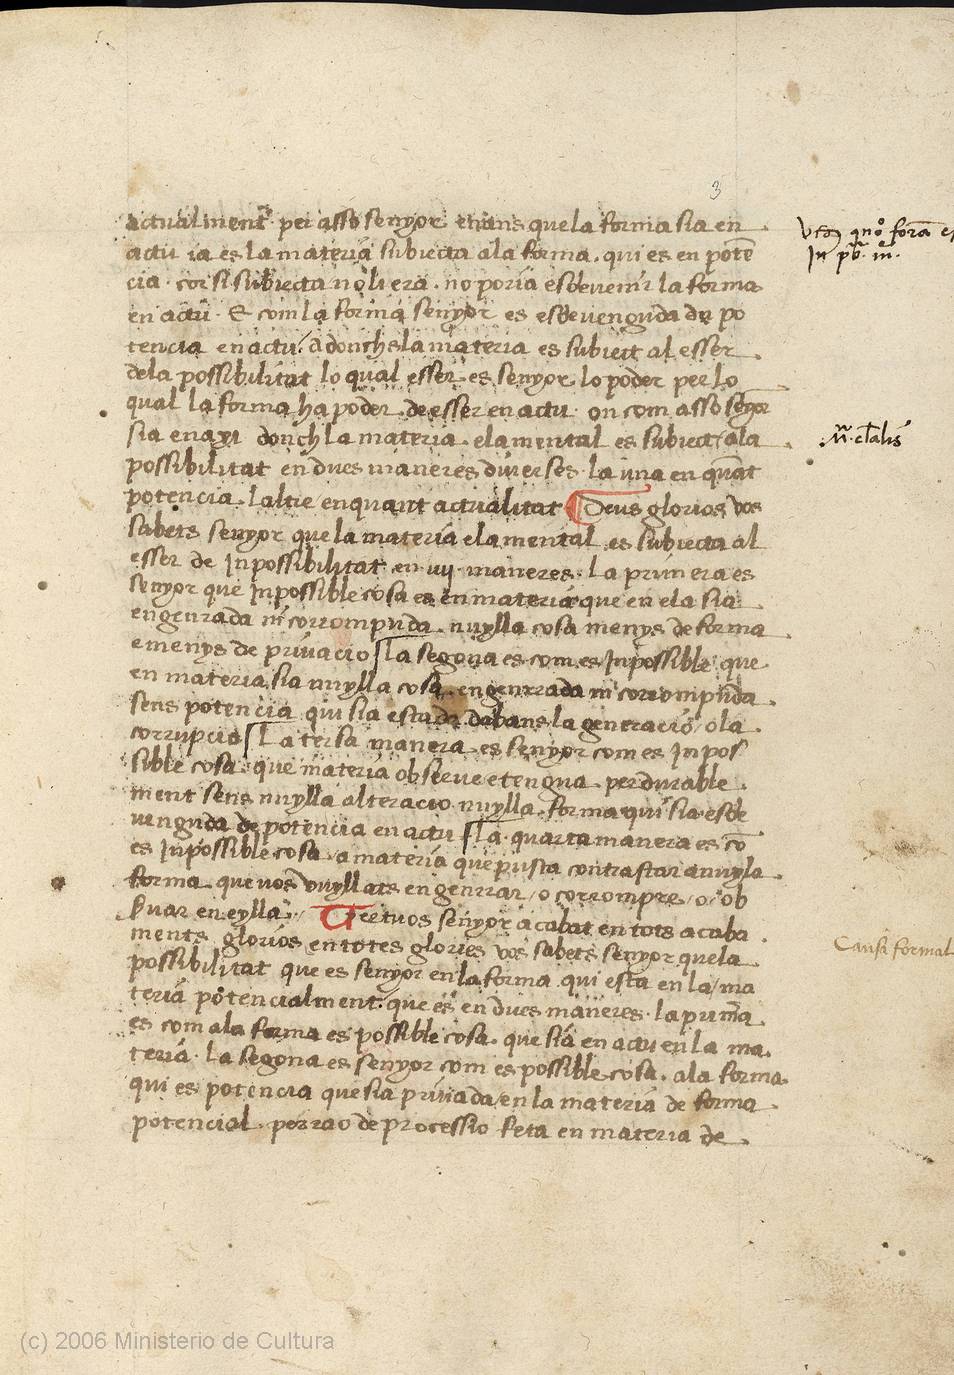 3
actualment per asso senyor enans que la forma sia en
actu ia es la materia subiecta ala forma. qui es en potē
cia. cor si subiecta noli era. no poria esdevenir la forma
en actu. E com la forma senyor es esdevenguda de po
tencia en actu. adonchs la materia es subiect al esser
dela possibilitat lo qual esser es senyor lo poder per lo
qual la forma ha poder de esser en actu. on com asso señor
sia en axi donch la materia elamental es subiect ala
possibilitat en dues maneres diverses. la una en quāt
potencia. laltre enquant actualitat Deus glorios vos
sabets senyor que la materia elamental es subiecta al
esser de Inpossibilitat en .iiij. maneres. La primera es
senyor que Inpossible cosa es en materia que en ela sia
engenrada ni corrompuda nuylla cosa menys de forma
e menys de privacio La segona es com es Inpossible que
en materia sia nuylla cosa engenrrada ni corrompuda
sens potencia qui sia estada dabans la generacio o la
corrupcio La tersa manera es senyor com es Inpos
sible cosa que materia observe e tengua perdurable
ment sens nuylla alteracio nuylla forma qui sia esde
venguda de potencia en actu La quarta manera es cō
es Inpossible cosa a materia que pusca contrastar a nuyla
forma que vos vuyllats engenrrar / o corrompre / o ob
servar en eylla. Vertuos senyor acabat en tots acaba
ments glorios en totes glories vos sabets senyor quela
possibilitat que es senyor en la forma qui esta en la ma
teria potencialment que es en dues maneres. la primā
es com ala forma es possible cosa. que sia en actu en la ma
teria. la segona es senyor com es possible cosa. ala forma
qui es potencia que sia privada en la materia de forma
potencial. per rao de processio feta en materia de
Causa formal